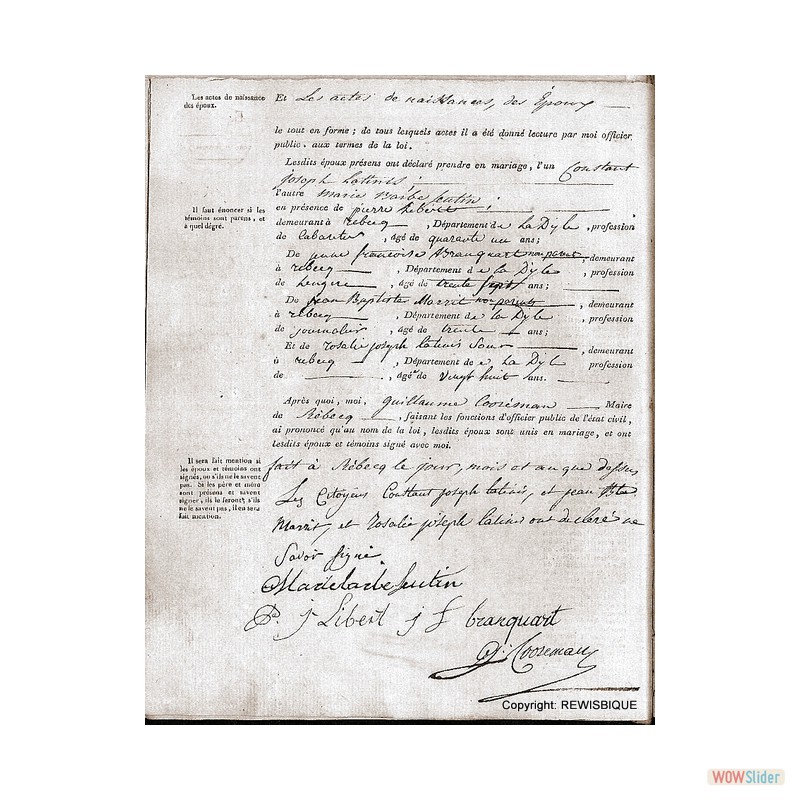 Les actes de naissance
des époux.
Et Les actes de naissances, des Époux
le tout en forme ; de tous lesquels actes il a été donné lecture par moi officier
public. aux termes de la loi.
Lesdits époux présens ont déclaré prendre en mariage, l'un Constant
joseph Latinis ;
l'autre Marie Barbe Seutin ;
Il faut énoncer si les
témoins sont parens, et
à quel dégré.
en présence de pierre Libert ;
demeurant à rebecq , Département de La Dyle , profession
de Cabartier , âgé de quarante un ans ;
De jeanne francoise Branquart non parent , demeurant
à rebecq , Département de La Dyle , profession
de , âgé de trente sept ans ;
De jean Baptiste Mazzit non parent , demeurant
à rebecq , Département de La Dyle , profession
de journalier , âgé de trente ans ;
Et de rosalie joseph latinis Sœur , demeurant
à rebecq , Département de La Dyle profession
de , âgé de vingt huit ans.
Après quoi, moi, Guillaume Cooreman Maire
de Rébecq , faisant les fonctions d'officier public de l'état civil,
ai prononcé qu'au nom de la loi, lesdits époux sont unis en mariage, et ont
lesdits époux et témoins signé avec moi.
Il sera fait mention si
les époux et témoins ont
signés, ou s'ils ne savent
pas. Si les père et mère
sont présens et savent
signer, ils le feront; s'ils
ne le savent pas, il en sera
fait mention.
fait à Rébecq le jour, mois et an que dessus
Les Citoyens Constant joseph latinis, et jean Bte
Mazzit, et Rosalie joseph latinis ont declaré ne
Savoir signé
Seutin
P. j Libert j f branquart
G. Cooreman
Copyright: REWISBIQUE
WOWSlider